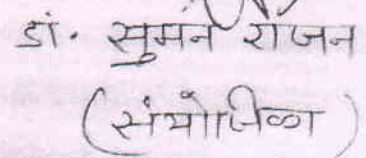 डॉ. सुमन रंजन
(संयोजिका)